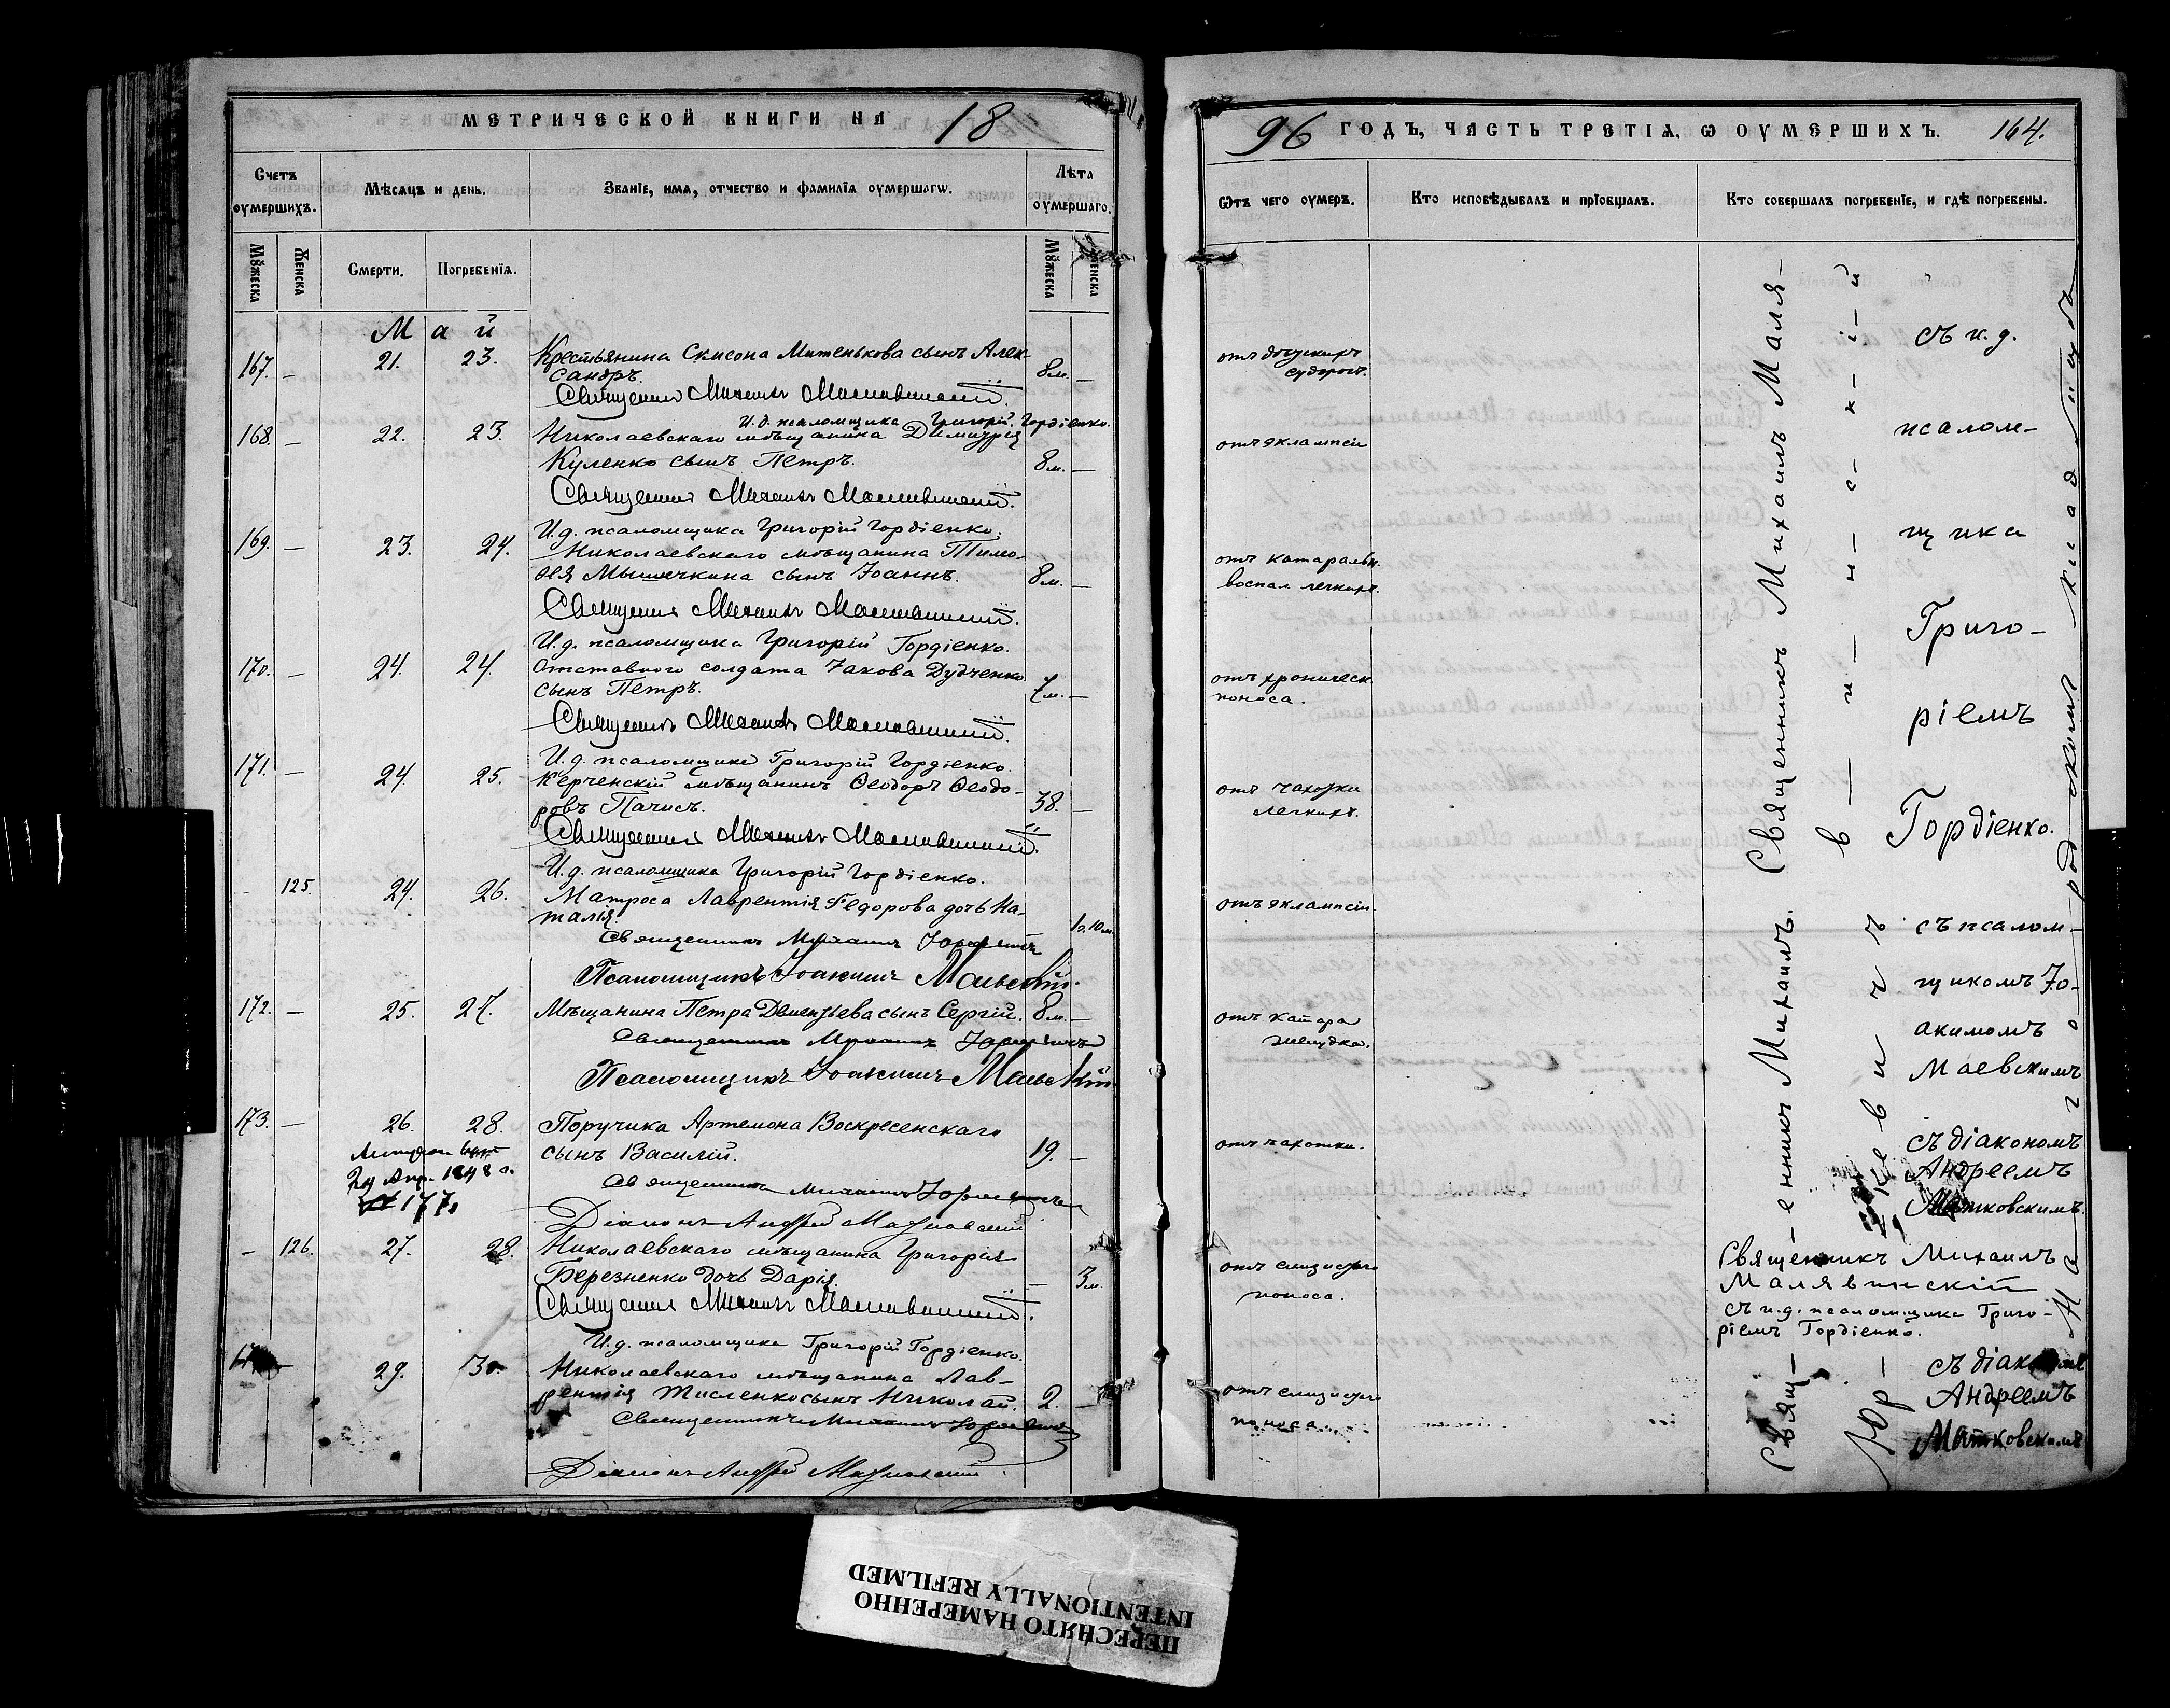 МЕТРИЧЕСКОЙ КНИГИ НА 18
Счетъ оумершихъ.
Мѣсяцъ и день.
Званіе, имя, отчество и фамилія оумершагѡ.
Лѣта оумершаго.
Мужеска
Женска
Смерти.
Погребенія.
Мужеска
Женска
Май
167. — 21. 23. Крестьянина Митенькова сынъ Алек-
сандръ. 8 м. —
Священникъ Михаилъ Малявинскій.
И.д. псаломщика Григорій Гордіенко.
168. — 22. 23. Николаевскаго мѣщанина Димитрія
Куленко сынъ Петръ. 8 м. —
Священникъ Михаилъ Малявинскій.
И.д. псаломщика Григорій Гордіенко.
169. — 23. 24. Николаевскаго мѣщанина Тимо-
ѳея Мышечкина сынъ Іоаннъ. 8 м. —
Священникъ Михаилъ Малявинскій.
И.д. псаломщика Григорій Гордіенко.
170. — 24. 24. Отставного солдата Іакова Дудченко
сынъ Петръ. 7 м. —
Священникъ Михаилъ Малявинскій.
И.д. псаломщика Григорій Гордіенко.
171. — 24. 25. Керченскій мѣщанинъ Ѳеодоръ Ѳеодо-
ровъ Пачисъ. 38. —
Священникъ Михаилъ Малявинскій.
И.д. псаломщика Григорій Гордіенко.
— 125. 24. 26. Матроса Лаврентія Федорова дочь На-
талія. 1 г. 10 м.
Священникъ Михаилъ Юркевичъ
Псаломщикъ Іоакимъ Маевскій.
172. — 25. 27. Мѣщанина Петра Дементьева сынъ Сергій. 8 м. —
Священникъ Михаилъ Юркевичъ
Псаломщикъ Іоакимъ Маевскій
173. — 26. 28. Поручика Артемона Воскресенскаго
сынъ Василій. 19. —
Священникъ Михаилъ Юркевичъ
Діаконъ Андрей Матковскій
— 126. 27. 28. Николаевскаго мѣщанина Григорія
Березненко дочь Дарія. — 3 м.
Священникъ Михаилъ Малявинскій.
И.д. псаломщика Григорій Гордіенко.
29. 30. Николаевскаго мѣщанина Лав-
рентія Тисленко сынъ Николай. 2. —
Священникъ Михаилъ Юркевичъ
Діаконъ Андрей Матковскій
96 ГОДЪ, ЧАСТЬ ТРЕТІЯ, Ѡ ОУМЕРШИХЪ. 164.
Ѡтъ чего оумеръ.
Кто исповѣдывалъ и пріобщалъ.
Кто совершалъ погребеніе, и гдѣ погребены.
отъ дѣтскихъ
судорогъ.
отъ эклампсіи
отъ катаральн.
воспал. легкихъ.
отъ хроническ.
поноса.
отъ чахотки
легкихъ.
отъ эклампсіи.
отъ катара
желудка.
отъ чахотки.
отъ слизистаго
поноса.
отъ слизистаго
поноса.
Священникъ Михаилъ Маля-
в—и—н—с—к—і—й
съ и.д.
псалом-
щика
Григо-
ріемъ
Гордіенко.
Священникъ Михаилъ
Юр—кевичъ
съ псалом-
щикомъ Іо-
акимомъ
Маевскимъ
съ діакономъ
Андреемъ
Матковскимъ.
Священникъ Михаилъ
Малявинскій
съ и.д. псаломщика Григо-
ріемъ Гордіенко.
съ діакономъ
Андреемъ
Матковскимъ
На городскомъ кладбищѣ
ПЕРЕСНЯТО НАМЕРЕННО
INTENTIONALLY REFILMED